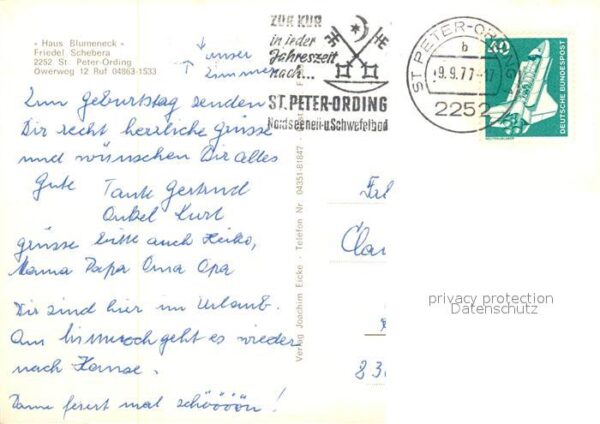 « Haus Blumeneck »
Friedel Schebera
2252 St. Peter-Ording
Öwerweg 12 Ruf 04863-1533
unser
Zimmer
ZUR KUR
in jeder
Jahreszeit
nach...
ST. PETER-ORDING
Nordseeheil- u. Schwefelbad
ST PETER-ORDING
b
9.9.77-17
2252
40
DEUTSCHE BUNDESPOST
Zum Geburtstag senden
Dir recht herzliche Grüsse
und wünschen Dir alles
Gute Tante Gertrud
Onkel Kurt
grüsse bitte auch Heiko,
Mama Papa Oma Opa
Wir sind hier im Urlaub.
Am geht es wieder
nach Hause.
feiert mal schööön!
Verlag Joachim Eicke - Telefon Nr. 04351-81847
Cla
privacy protection
Datenschutz